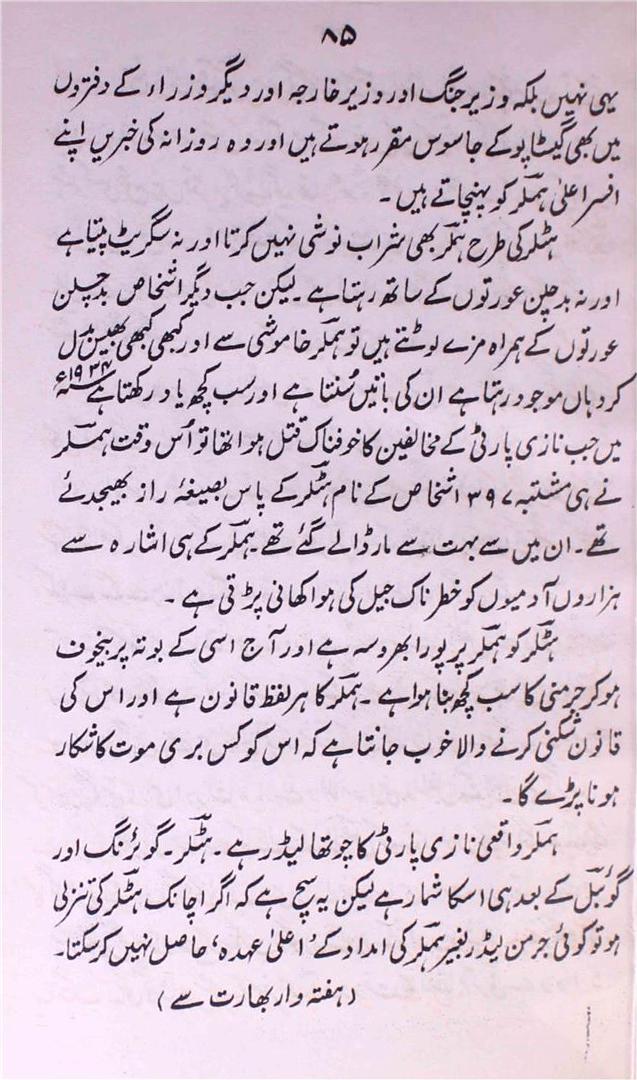 ۸۵
یہی نہیں بلکہ وزیر جنگ اور وزیر خارجہ اور دیگر وزراء کے دفتروں
میں بھی گیسٹاپو کے جاسوس مقرر ہوتے ہیں اور وہ روزانہ کی خبریں اپنے
افسر اعلیٰ ہملر کو پہنچاتے ہیں۔
ہٹلر کی طرح ہملر بھی شراب نوشی نہیں کرتا اور نہ سگریٹ پیتا ہے
اور نہ بدچلن عورتوں کے ساتھ رہتا ہے۔ لیکن جب دیگر اشخاص بدچلن
عورتوں کے ہمراہ مزے لوٹتے ہیں تو ہملر خاموشی سے اور کبھی کبھی بھیس بدل
کر وہاں موجود رہتا ہے ان کی باتیں سُنتا ہے اور سب کچھ یاد رکھتا ہے ۱۹۳۴ء
میں جب نازی پارٹی کے مخالفین کا خوفناک قتل ہوا تھا تو اُس وقت ہملر
نے ہی مشتبہ ۱۳۹۷ اشخاص کے نام ہٹلر کے پاس بصیغۂ راز بھیجدئے
تھے۔ ان میں سے بہت سے مار ڈالے گئے تھے۔ ہملر کے ہی اشارہ سے
ہزاروں آدمیوں کو خطرناک جیل کی ہوا کھانی پڑتی ہے۔
ہٹلر کو ہملر پر پورا بھروسہ ہے اور آج اسی کے بوتہ پر بیخوف
ہو کر جرمنی کا سب کچھ بنا ہوا ہے۔ ہملر کا ہر لفظ قانون ہے اور اس کی
قانون شکنی کرنے والا خوب جانتا ہے کہ اس کو کس بری موت کا شکار
ہونا پڑے گا۔
ہملر واقعی نازی پارٹی کا چوتھا لیڈر ہے۔ ہٹلر۔ گوئرنگ اور
گوئبل کے بعد ہی اسکا شمار ہے لیکن یہ سچ ہے کہ اگر اچانک ہٹلر کی تنزلی
ہو تو کوئی جرمن لیڈر بغیر ہملر کی امداد کے ’اعلیٰ عہدہ‘ حاصل نہیں کرسکتا۔
(ہفتہ وار بھارت سے)